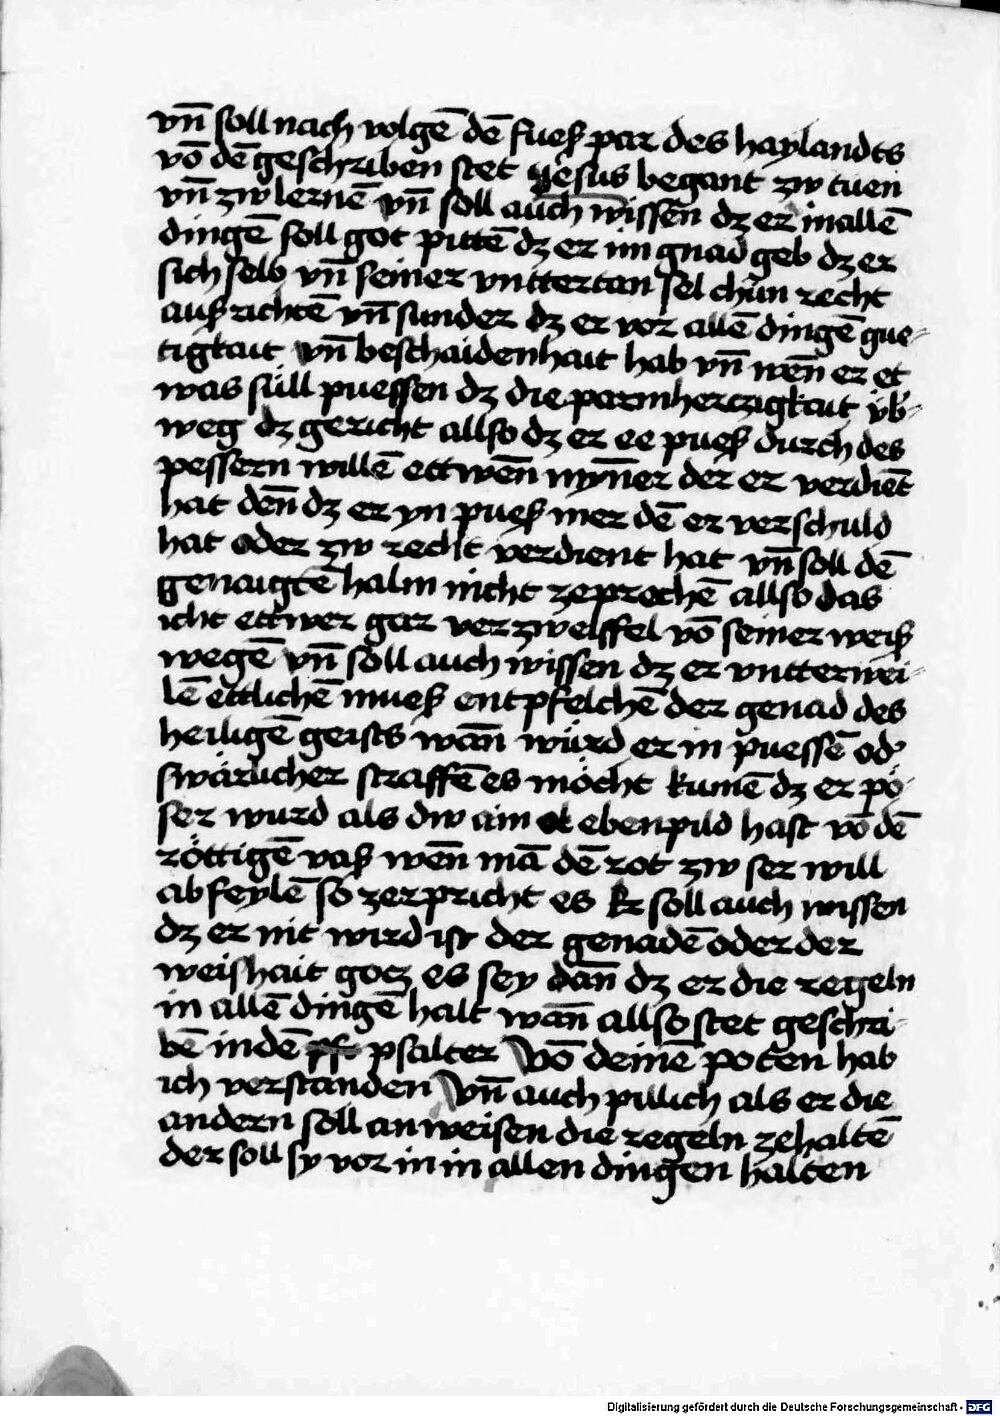 vn̄ soll nach volgē dē fueß par des haylandts
vō dē geschriben stet yesus begant zw tuen
vn̄ zw lernē vn̄ soll auch wissen dz er in allē
dingē soll got pittē dz er im gnad geb dz er
sich selb vn̄ seiner vnttertan sel chün recht
auß richtē vn̄ sunder dz er vor allē dingē gue-
tigkait vn̄ beschaidenhait hab vn̄ wen̄ er et
was süll puessen dz die parmherczigkait vb̄-
weg dz gericht allso dz er ee pueß durch des
pessern willē ettwen̄ myn̄er der er verdiēt
hat den̄ dz er yn pueß mer dē er verschuld
hat oder zw recht verdient hat vn̄ soll dē
genaigtē halm nicht zeprochē allso das
icht ettwer gar verzweiffel vō seiner weiß
wegē vn̄ soll auch wissen dz er vntterwei-
lē ettlichē mueß entpfelchē der genad des
heiligē geists wan̄ würd er in puessē od'
swärlicher straffē es möcht kumē dz er pö-
ser wurd als dw ain ebenpild hast vō dē
röttigē vaß wen̄ mā dē rot zw ser will
ab feylē so zerpricht es Er soll auch wissen
dz er nit wird ist der genadē oder der
weishait gotz es sey dan̄ dz er die regeln
in allē dingē halt wan̄ allso stet geschri-
bē in dē psalter Vō deinē poten hab
ich verstanden Vn̄ auch pillich als er die
andern soll anweisen die regeln zehaltē
der soll sy vor in in allen dingen halten
Digitalisierung gefördert durch die Deutsche Forschungsgemeinschaft - DFG